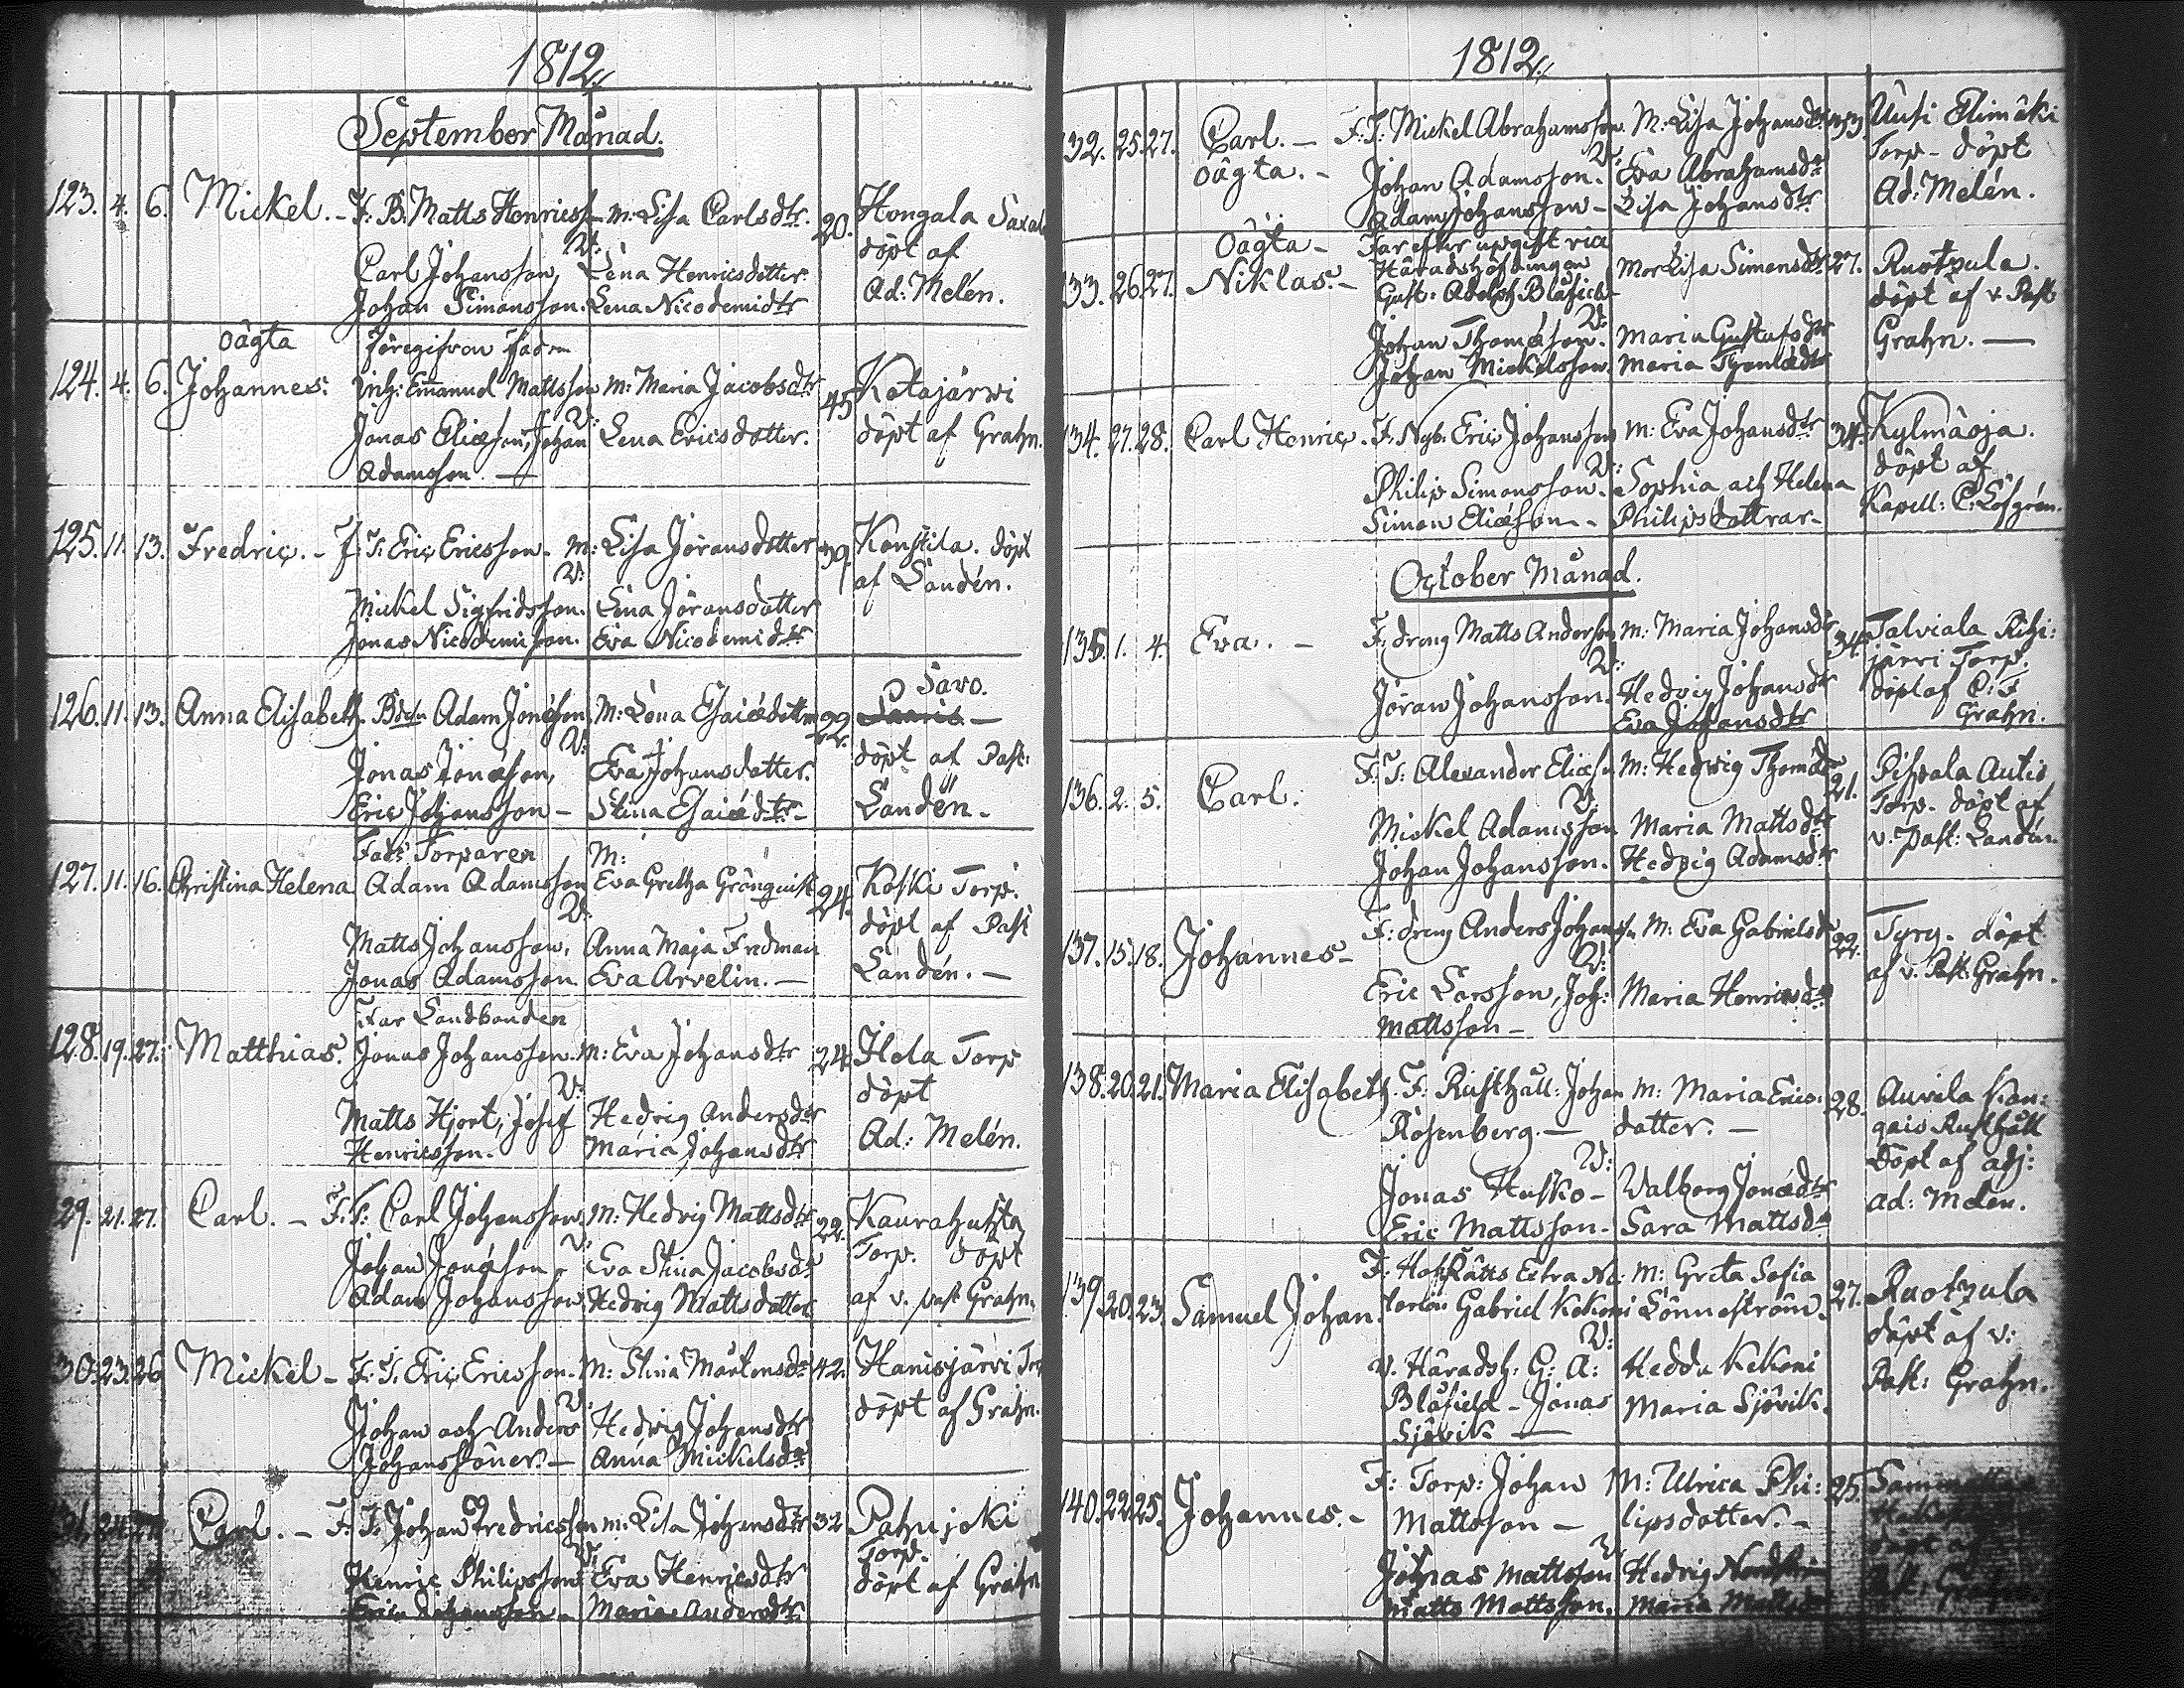 1812.
September Månad.
123. 4. 6. Mickel. - F: B: Matts Henricss. M: Lisa Carlsdtr. 20. Hongala
V:
Carl Johansson, Lena Henricsdotter döpt af
Johan Simonsson. Lena Nicodemidtr Ad: Melén.
oägta Föregifvon fadren
124. 4. 6. Johannes. Inh: Emanuel Mattsson M: Maria Jacobsdtr 45 Katajärvi
V:
Jonas Eliæson, Johan Lena Ericsdotter. döpt af Grahn.
Adamsson. —
125. 11. 13. Fredric. - F: T: Eric Ericsson. M: Lisa Jöransdotter 39. Konstila. döpt
V: af Landén.
Mickel Sigfridsson. Lena Jöransdotter
Jonas Nicodemisson. Eva Nicodemidtr
Savo.
126. 11. 13. Anna Elisabeth. Bdsn Adam Jonæson M: Lena Esaiædotter 22.
V:
Jonas Jonæson, Eva Johansdotter. döpt af Past:
Eric Johansson - Stina Esaiædtr - Landén.
Fadr Torparen M:
127. 11. 16. Christina Helena Adam Adamsson Eva Gretha Grönqvist 24. Koski Torp.
V: döpt af Past
Matts Johansson, Anna Maja Fredman
Jonas Adamsson Eva Arvelin. — Landén. —
Far Landbonden
128. 19. 27. Matthias. Jonas Johansson. M: Eva Johansdtr 24 Ilola Torp
V: döpt
Matts Hjort, Josef Hedvig Andersdtr
Henricsson. Maria Johansdtr Ad: Melén.
29. 21. 27. Carl. - F: T: Carl Johansson M: Hedvig Mattsdtr 22. Kaurahuhta
V: Torp. döpt
Johan Jonæson - Eva Stina Jacobsdr
Adam Johansson Hedvig Mattsdotter af v. past Grahn.
30. 23. 26 Mickel - F: T: Eric Ericsson. M: Stina Mårtensdr 42. Hanisjärvi
V: döpt af Grahn.
Johan och Anders Hedvig Johansdtr
Johanssöner. — Anna Mickelsdr
Carl. - F: T: Johan Fredricsson M: Lisa Johansdtr 32 Pahujoki
V: Torp.
Henric Philipsson Eva Henricsdtr döpt af Grahn
Eric Johansson - Maria Andersdtr
1812.
132. 25. 27. Carl. - F: T: Mickel Abrahamsson. M: Lisa Johansdr 33. Uusi Elimäki
V: Torp - döpt
oägta. - Johan Adamsson. Eva Abrahamsdr
Adam Johansson - Lisa Johansdtr Ad: Melén.
oägta - Far efter upgift vice
33. 26. 27. Niklas. - Häradshöfdingen Mor Lisa Simonsdtr 27. Ruotzula.
Gust: Adolph Blåfield döpt af v. Past
V:
Johan Thomæson. Maria Gustafsdtr Grahn. —
Johan Mickelsson. Maria Thomædtr
134. 27. 28. Carl Henric. F: Nyb: Eric Johansson M: Eva Johansdtr 34. Kylmäoja.
V: döpt af
Philip Simonsson. Sophia och Helena
Simon Eliæson - Philipsdottrar - Kapell: C: Löfgrén.
October Månad.
135. 1. 4. Eva. - F: dreng Matts Anderson M: Maria Johansdr 34. Talviala Rihi:
V: järvi Torp.
Jöran Johansson. Hedvig Johansdtr döpt af
Eva Johansdtr Grahn.
136. 2. 5. Carl. F: T: Alexander Eliæs. M: Hedvig Thomædr 21. Pihpala Autio
V: Torp. döpt af
Mickel Adamsson Maria Mattsdtr
Johan Johansson. Hedvig Adamsdtr v. past: Landén.
137. 15. 18. Johannes - F: dreng Anders Johanss. M: Eva Gabrielsdr 22. Tyry. döpt
V: af v. Past: Grahn.
Eric Larsson, Joh: Maria Henricsdr
Mattsson -
138. 20. 21. Maria Elisabeth. F: Rusthåll: Johan M: Maria Erics: 28. Auvila Kan:
Rosenberg. — dotter. — gais Rusthåll
V: döpt af adj:
Jonas Husko - Valborg Jonædtr
Eric Mattsson - Sara Mattsdr ad: Melen.
139 20. 23. Samuel Johan. F: HofRätts Extra No: M: Greta Sofia 27. Ruotzula
tarien Gabriel Kekoni Lönneström. döpt af v:
V:
v. Häradsh: G: A: Hedda Kekoni
Blåfield - Jonas Maria Sjövik. Past: Grahn.
Sjövik —
140. 22. 25. Johannes. - F: Torp: Johan M: Ulrica Phi: 25.
Mattsson — lipsdotter. -
V:
Jonas Mattsson Hedvig
Matts Mattsson. Maria